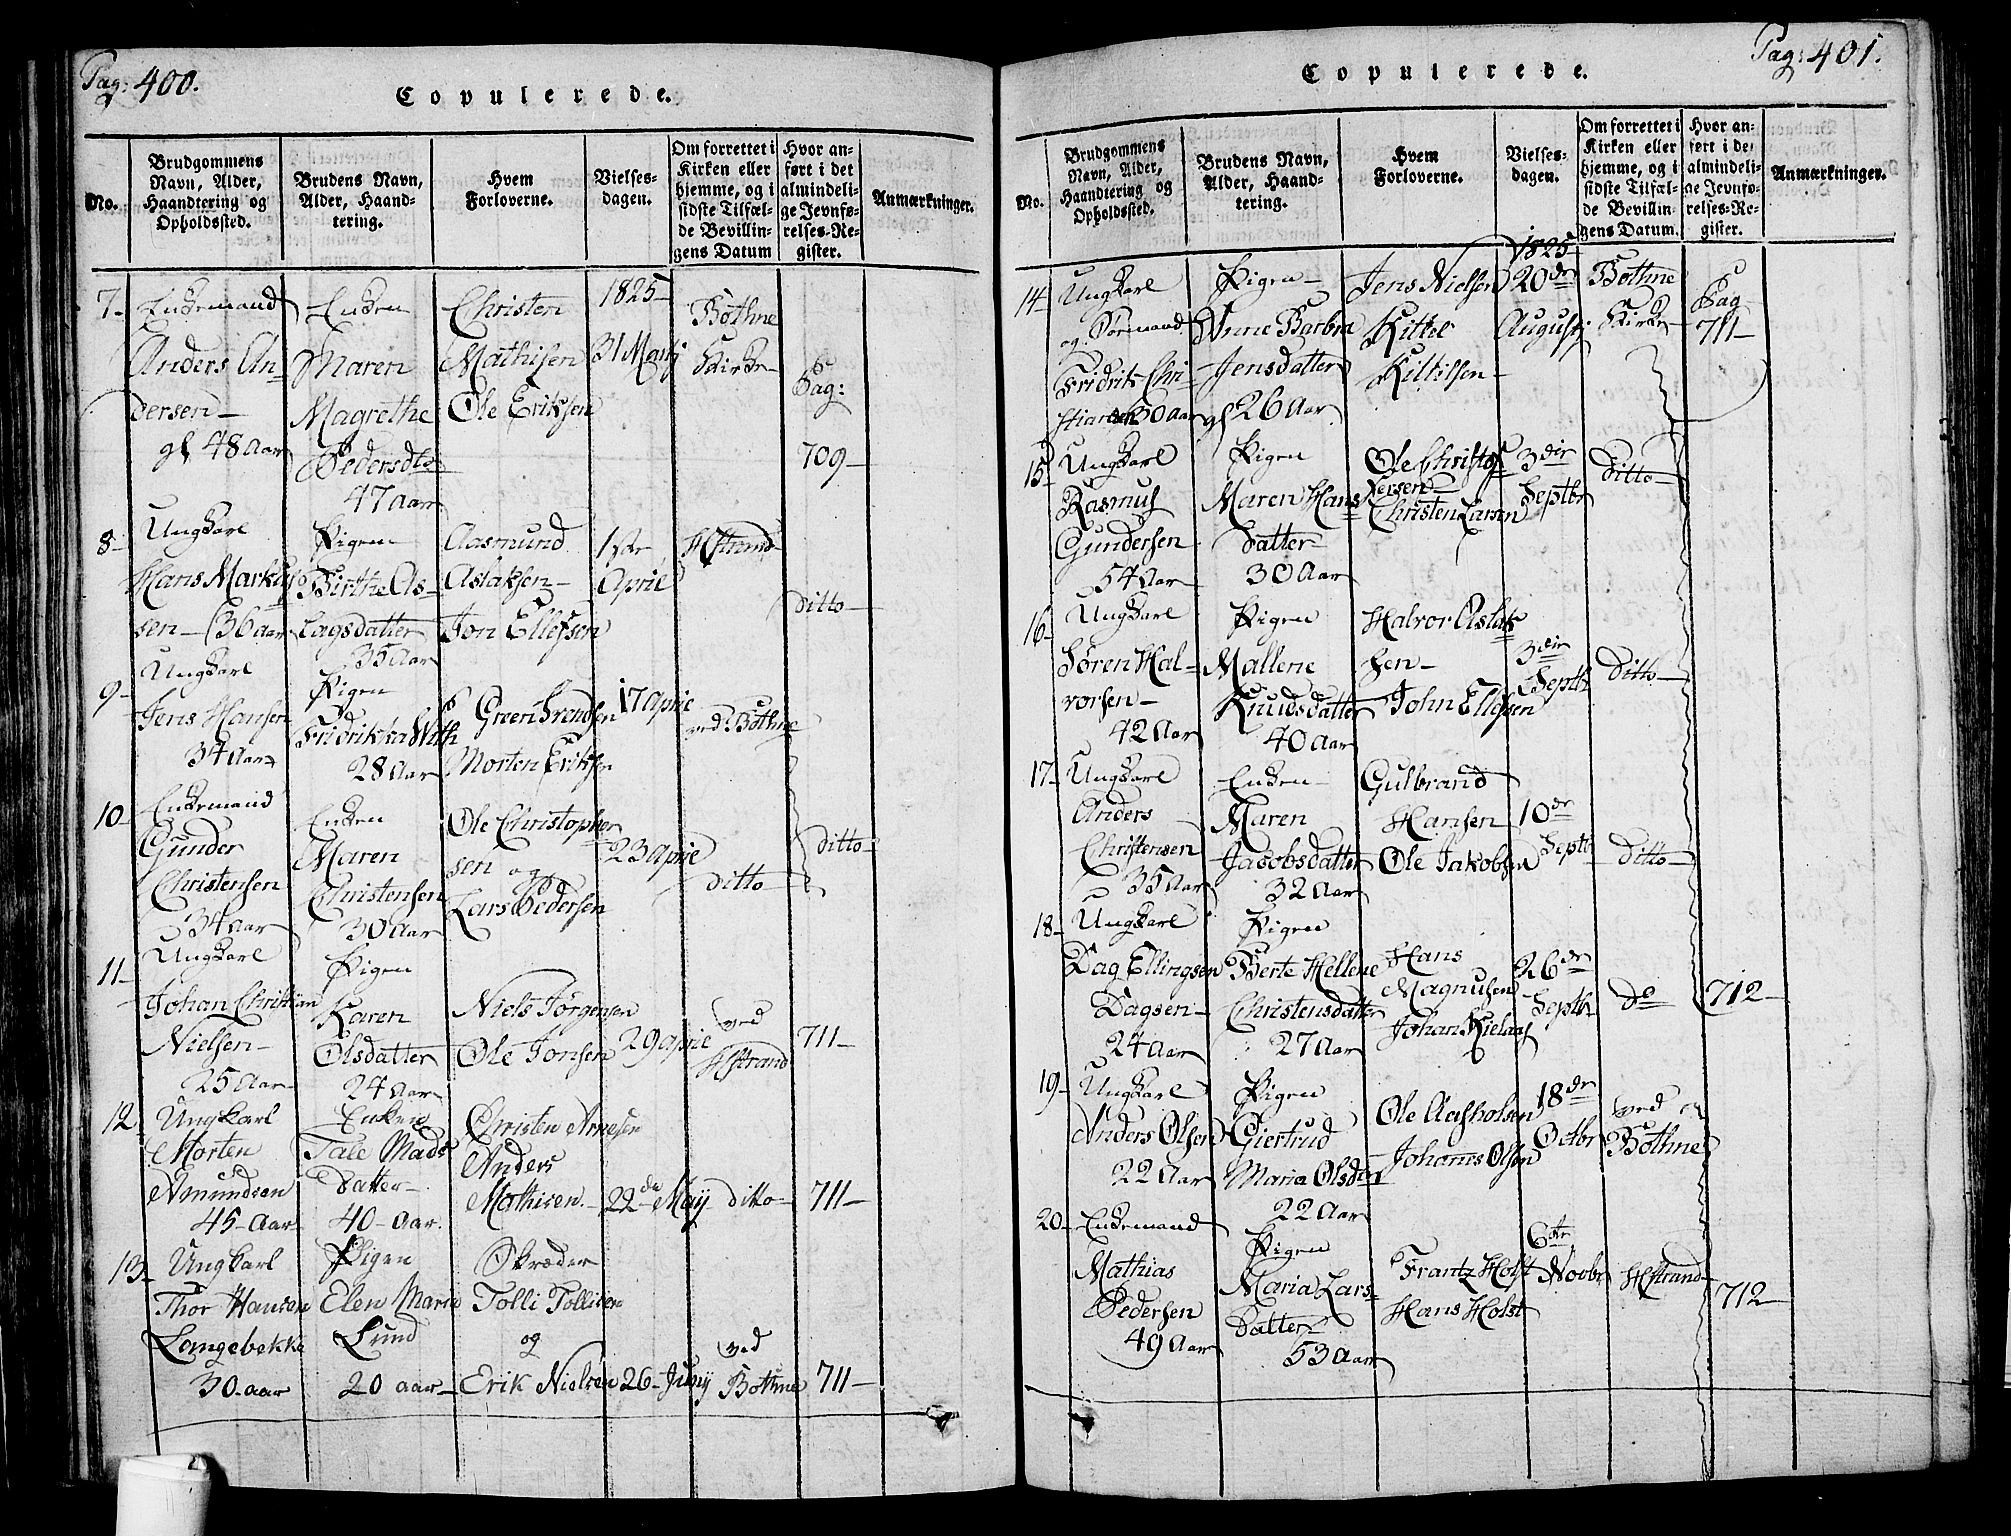 Pag: 400.
Copulerede.
No.
Brudgommens
Navn, Alder,
Haandtering og
Opholdssted.
Brudens Navn,
Alder, Haand-
tering.
Hvem
Forloverne.
Vielses-
dagen.
Om forrettet i
Kirken eller
hjemme, og i
sidste Tilfæl-
de Bevillin-
gens Datum
Hvor an-
ført i det
almindeli-
ge Jevnfø-
relses-Re-
gister.
Anmærkninger.
7-
Enkemand
Anders An-
dersen-
gl 48 Aar
Enken
Maren
Magrethe
Pedersdtr
47 aar
Christen
Mathisen
Ole Eriksen
1825-
31 Martj
Bothne
Kirke-
Pag:
709-
8-
Ungkarl
Hans Markus
sen- (36 aar
Pigen
Birthe As-
lagsdatter
35 Aar
Aasmund
Aslaksen-
Jon Ellefsen
1ste
April
Hstrand
ditto-
9-
Ungkarl
Jens Hansen
34 Aar
Pigen
Fridrikka With
28 Aar
Green Svendsen
Morten Eriksen
17 april
ved Bothne
10-
Enkemand
Gunder
Christensen
34 Aar
Enken
Maren
Christensen
30 Aar
Ole Christopher
sen og
Lars Pedersen
23 april
ditto-
ditto-
11-
Ungkarl
Johan Christian
Nielsen-
25 Aar-
Pigen
Karen
Olsdatter
24 Aar-
Niels Jörgensen
Ole Jonsen
29 april
ved
Hstrand
711-
12.
Ungkarl
Morten
Amundsen
45- Aar
Enken
Tale Mads
Datter-
40- Aar.
Christen Arnesen
Anders
Mathisen.-
22de Maij
ditto-
711-
13-
Ungkarl
Thor Hansen
Langebekke
30- aar
Pigen
Elen Maria
Lund
20 aar-
Skræder
Tolli Tollisen
og
Erik Nielsen
26- Junij
ved
Bothne
711-
Pag: 401.
Copulerede.
No.
Brudgommens
Navn, Alder,
Haandtering og
Opholdssted.
Brudens Navn,
Alder, Haand-
tering.
Hvem
Forloverne.
Vielses-
dagen.
Om forrettet i
Kirken eller
hjemme, og i
sidste Tilfæl-
de Bevillin-
gens Datum.
Hvor an-
ført i de
almindeli-
ge Jevnfø-
relses-Re-
gister.
Anmærkninger.
14-
Ungkarl
og
Fridrik Chri-
stiansen 30 Aar
Pigen-
Anne Barbra
Jensdatter
gl 26 Aar
Jens Nielsen
Kittel
Kittilsen-
1825-
20de
August
Bothne
Kirke-
Pag-
711-
15-
Ungkarl
Rasmus
Gundersen
54 Aar
Pigen
Maren Hans
datter-
30 Aar
Ole Christof
fersen-
Christen Larsen
3die
Septbr
ditto-
16-
Ungkarl
Sören Hal-
vorsen-
42 Aar
Pigen
Mallene
Knudsdatter
40 Aar
Halvor Aslak
sen-
John Ellefsen
3die
Septbr
ditto-
17-
Ungkarl
Anders
Christensen
35 Aar
Enken-
Maren
Jacobsdatter
32 Aar
Gulbrand
Hansen
Ole Jakobsen
10de
Septb-
ditto-
18-
Ungkarl
Dag Ellingsen
Dagsen-
24 Aar
Pigen
Berte Hellene
Christensdatter
27 Aar
Hans
Magnusen
Johan
26de
Septbr
do
712-
19-
Ungkarl
Anders Olsen
22 Aar
Pigen
Giertrud
Maria Olsdtr
22 Aar
Ole Aasholsen
Johannes Olsen
18de
Octbr
ved
Bothne
20-
Enkemand
Mathias
Pedersen
49 Aar
Pigen
Maria Lars-
Datter-
53 Aar
Frantz Holst
Hans Holst
6te
Novbr
Hstrand-
712-